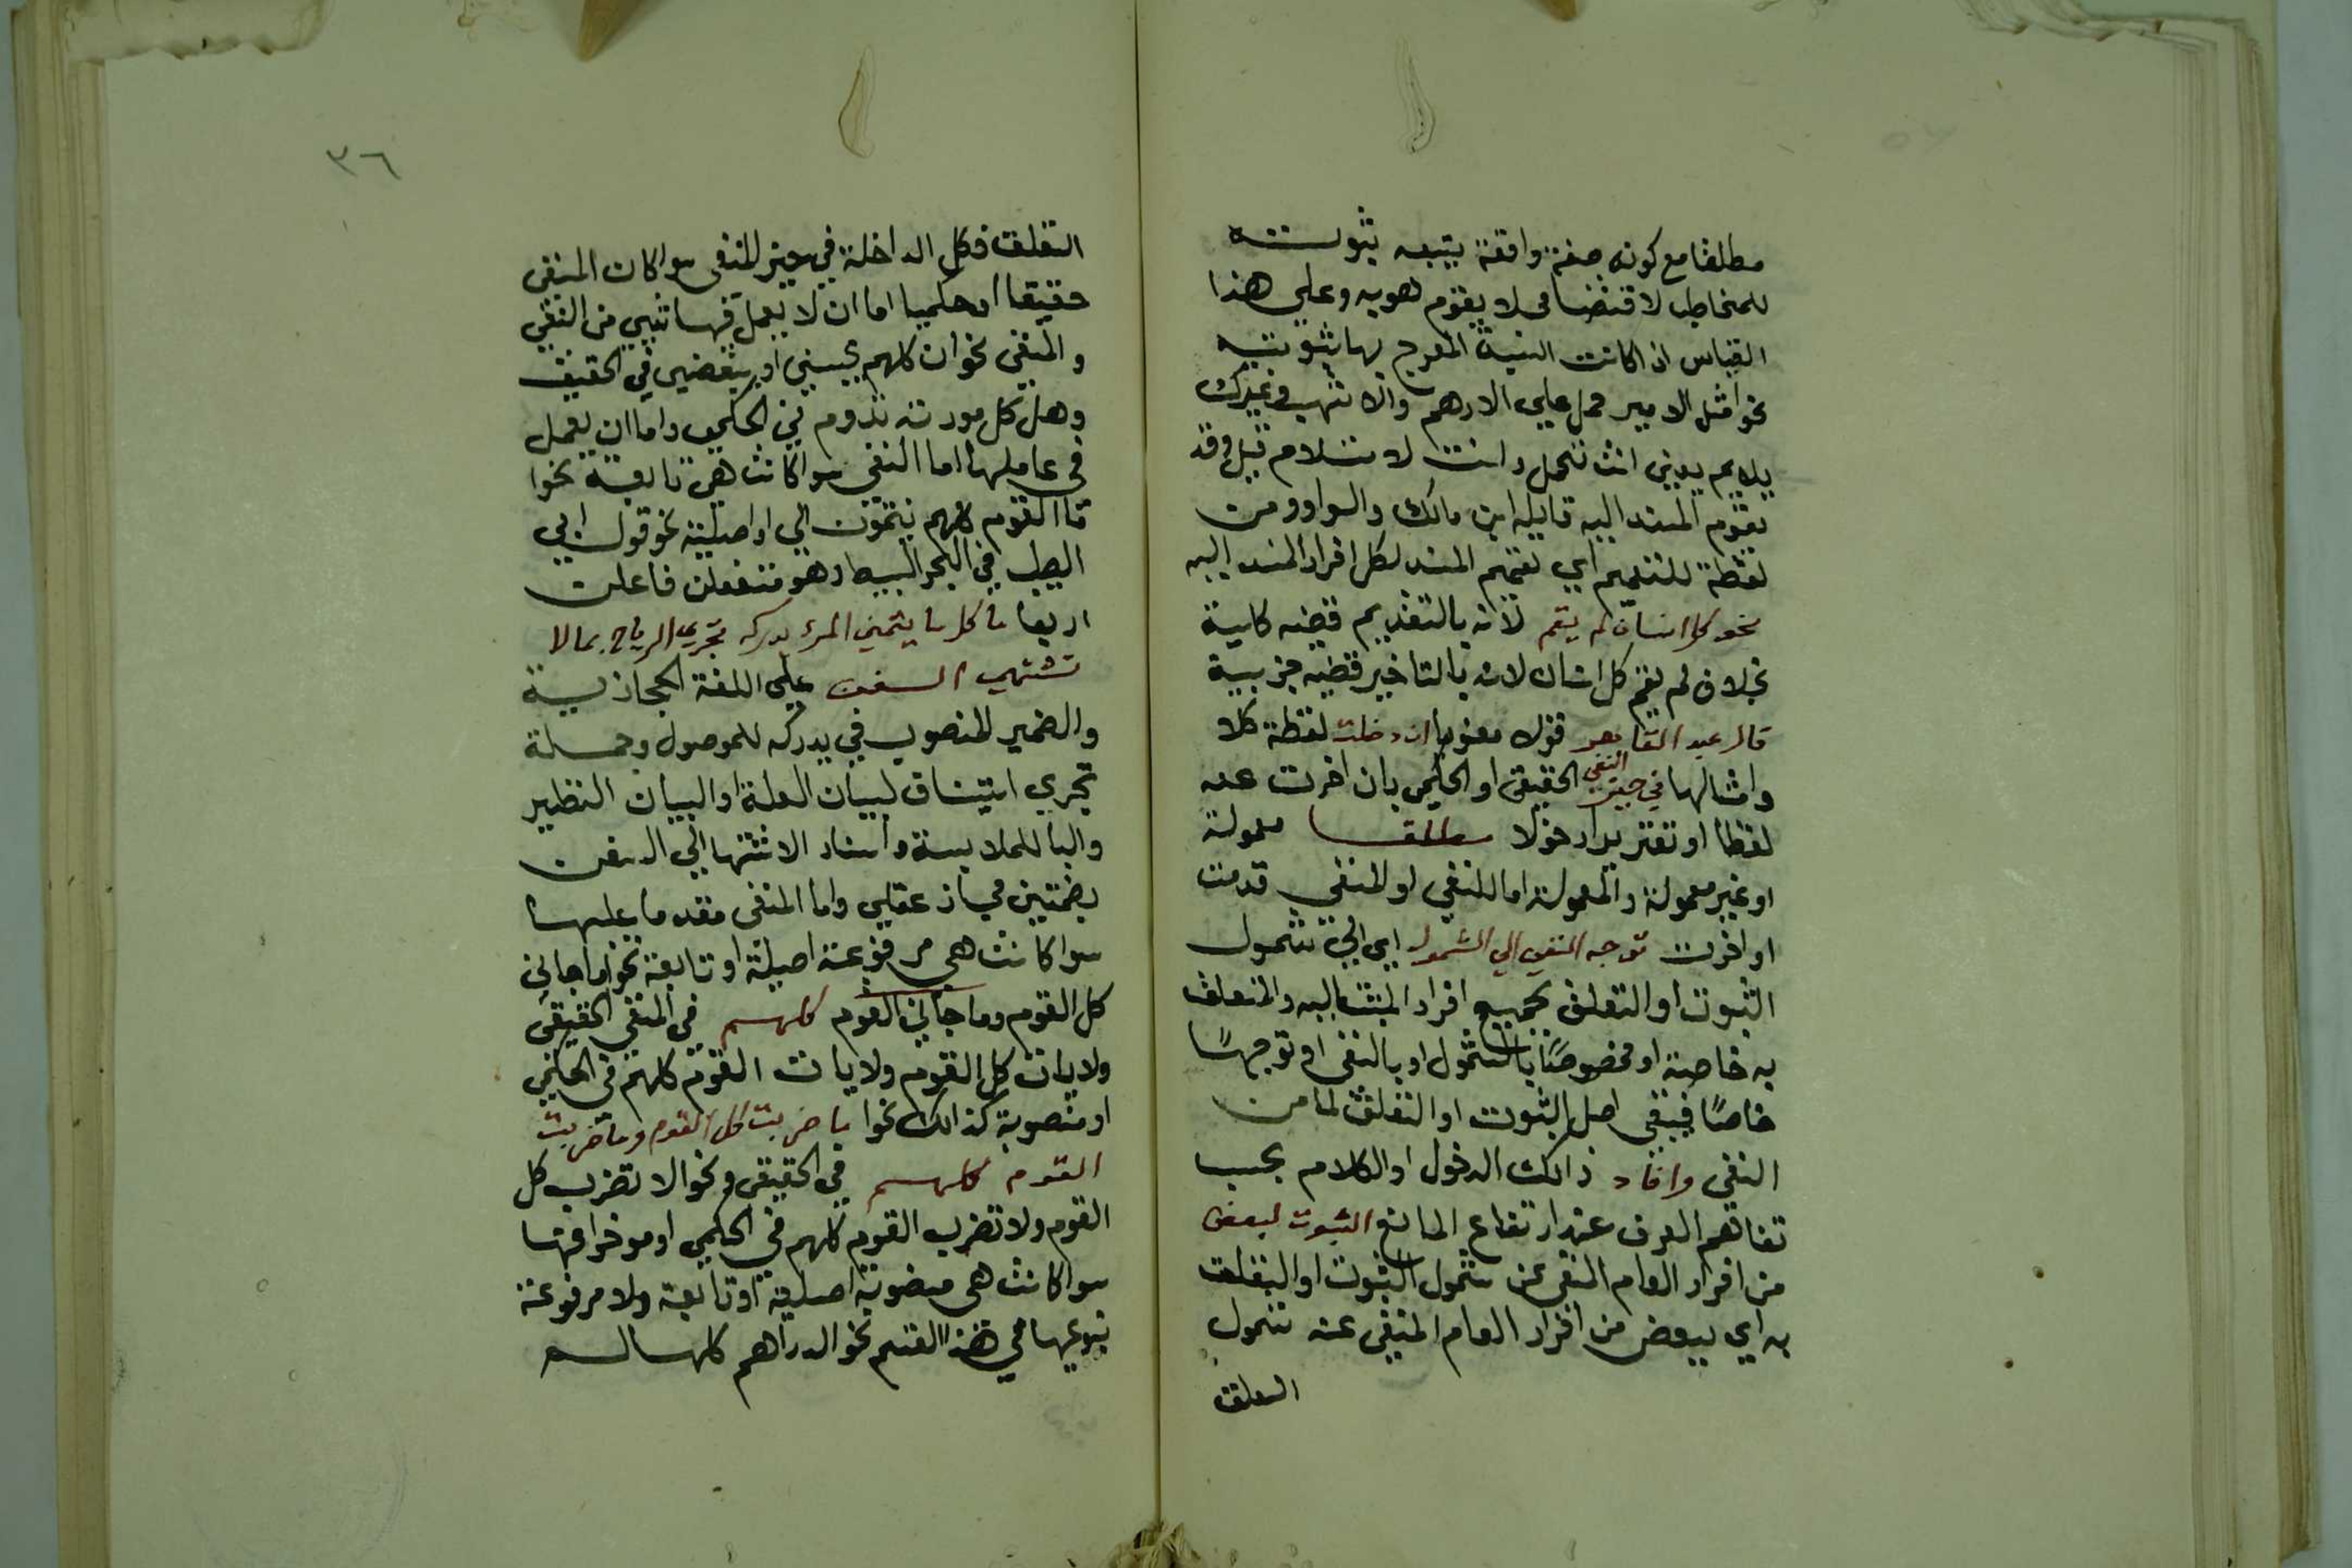 مطلقا مع كونه صفة واقفة يتبعه ثبوته
للمخاطب لاقتضا في لا يقوم هويه وعلي هذا
القياس اذا كانت البنية المعرج بها ثبوتيه
نحو مثل الامير حمل علي الادهم والاشهب وغيرك
يلايم يعني انت تحمل وانت لا تسلام قيل وقد
يقوم المسند اليه قايله ابن مالك والواو ومن
لفظة للتعميم اي تعميم المسند لكل افراد المسند اليه
نحو كل انسان لم يقم لانه بالتقديم قضيه كلية
بخلاف لم يقم كل انسان لانه بالتاخير قضيه جزيية
قال عبد القاهر قولا معنويا ان دخلت لفظة كلا
وامثالها في حيز النفي الحقيقي او الحكمي بان اخرت عنه
لفظا او تقديرا دخولا مطلقا معمولة
او غير معمولة والمعمولة اما للنفي او المنفي قدمت
او اخرت توجه النفي الي الشمول اي الي شمول
الثبوت او التعلق بجميع افراد المثبت اليه والمتعلق
به خاصة او مخصوصًا بالشمول او بالنفي او توجهًا
خاصًا فيبقي اصل الثبوت او التعلق لما من
النفي وافاد ذالك الدخول او الكلام بحسب
تفاهم العرف عند ارتفاع المانع الثبوت لبعض
من افراد العام المنفي عن شمول الثبوت او التعلق
به اي ببعض من افراد العام المنفي عنه شمول
التعلق
٣٦
التعلق فكل الداخلة في حيز المنفي سوا كان المنفي
حقيقيا او حكميا اما ان لا يعمل فيها شيي من النفي
والمنفي نحو ان كلهم يحسبني او يبغضني في الحقيقي
وهل كل مودته تدوم في الحكمي واما ان يعمل
في عاملها اما النفي سوا كانت هي تابعة نحوا
ما القوم كلهم ينتمون الي او اصلية نحو قول ابي
الطيب في البحر البسيط وهو مستفعلن فاعلن
اربعا ما كل ما يتمني المرء يدركه تجري الرياح بما لا
تشتهي السفن علي اللغة الحجازية
والضمير المنصوب في يدركه للموصول وجملة
تجري استيناف لبيان العلة او البيان النظير
والبا للملابسة واسناد الاشتها الي السفن
بضمتين مجاز عقلي واما المنفي مقدما عليها
سوا كانت هي مرفوعة اصيلة او تابعة نحو ما جاني
كل القوم وما جاني القوم كلهم في المنفي الحقيقي
ولا يات كل القوم ولا يات القوم كلهم في الحكمي
او منصوبة كذالك نحوا ما ضربت كل القوم وما ضربت
القوم كلهم في الحقيقي ونحو الا تضرب كل
القوم ولا تضرب القوم كلهم في الحكمي او موخرا فيها
سوا كانت هي منصوبة اصلية او تابعة ولا مرفوعة
بنوعيها في هذا القسم نحو الدراهم كلها لم